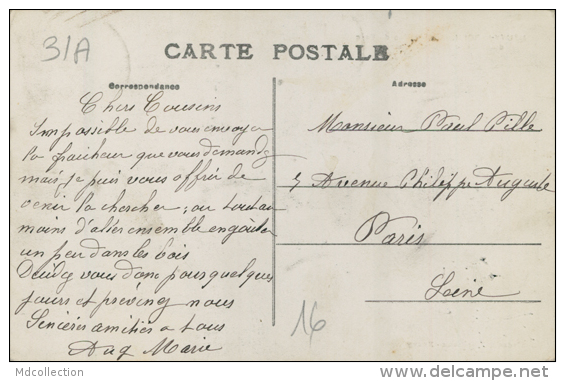 31A
CARTE POSTALE
Correspondance
Adresse
Chers Cousins
Impossible de vous envoyer
la fraicheur que vous demandez
mais je puis vous offrir de
venir la chercher, ou tout au
moins d'aller ensemble en goûter
un peu dans les bois
Décidez vous donc pour quelques
jours et prévenez nous
Sincères amitiés a tous
Aug Marie
Monsieur Paul Pille
5 Avenue Philippe Auguste
Paris
Seine
16
Mdcollection
www.delcampe.net